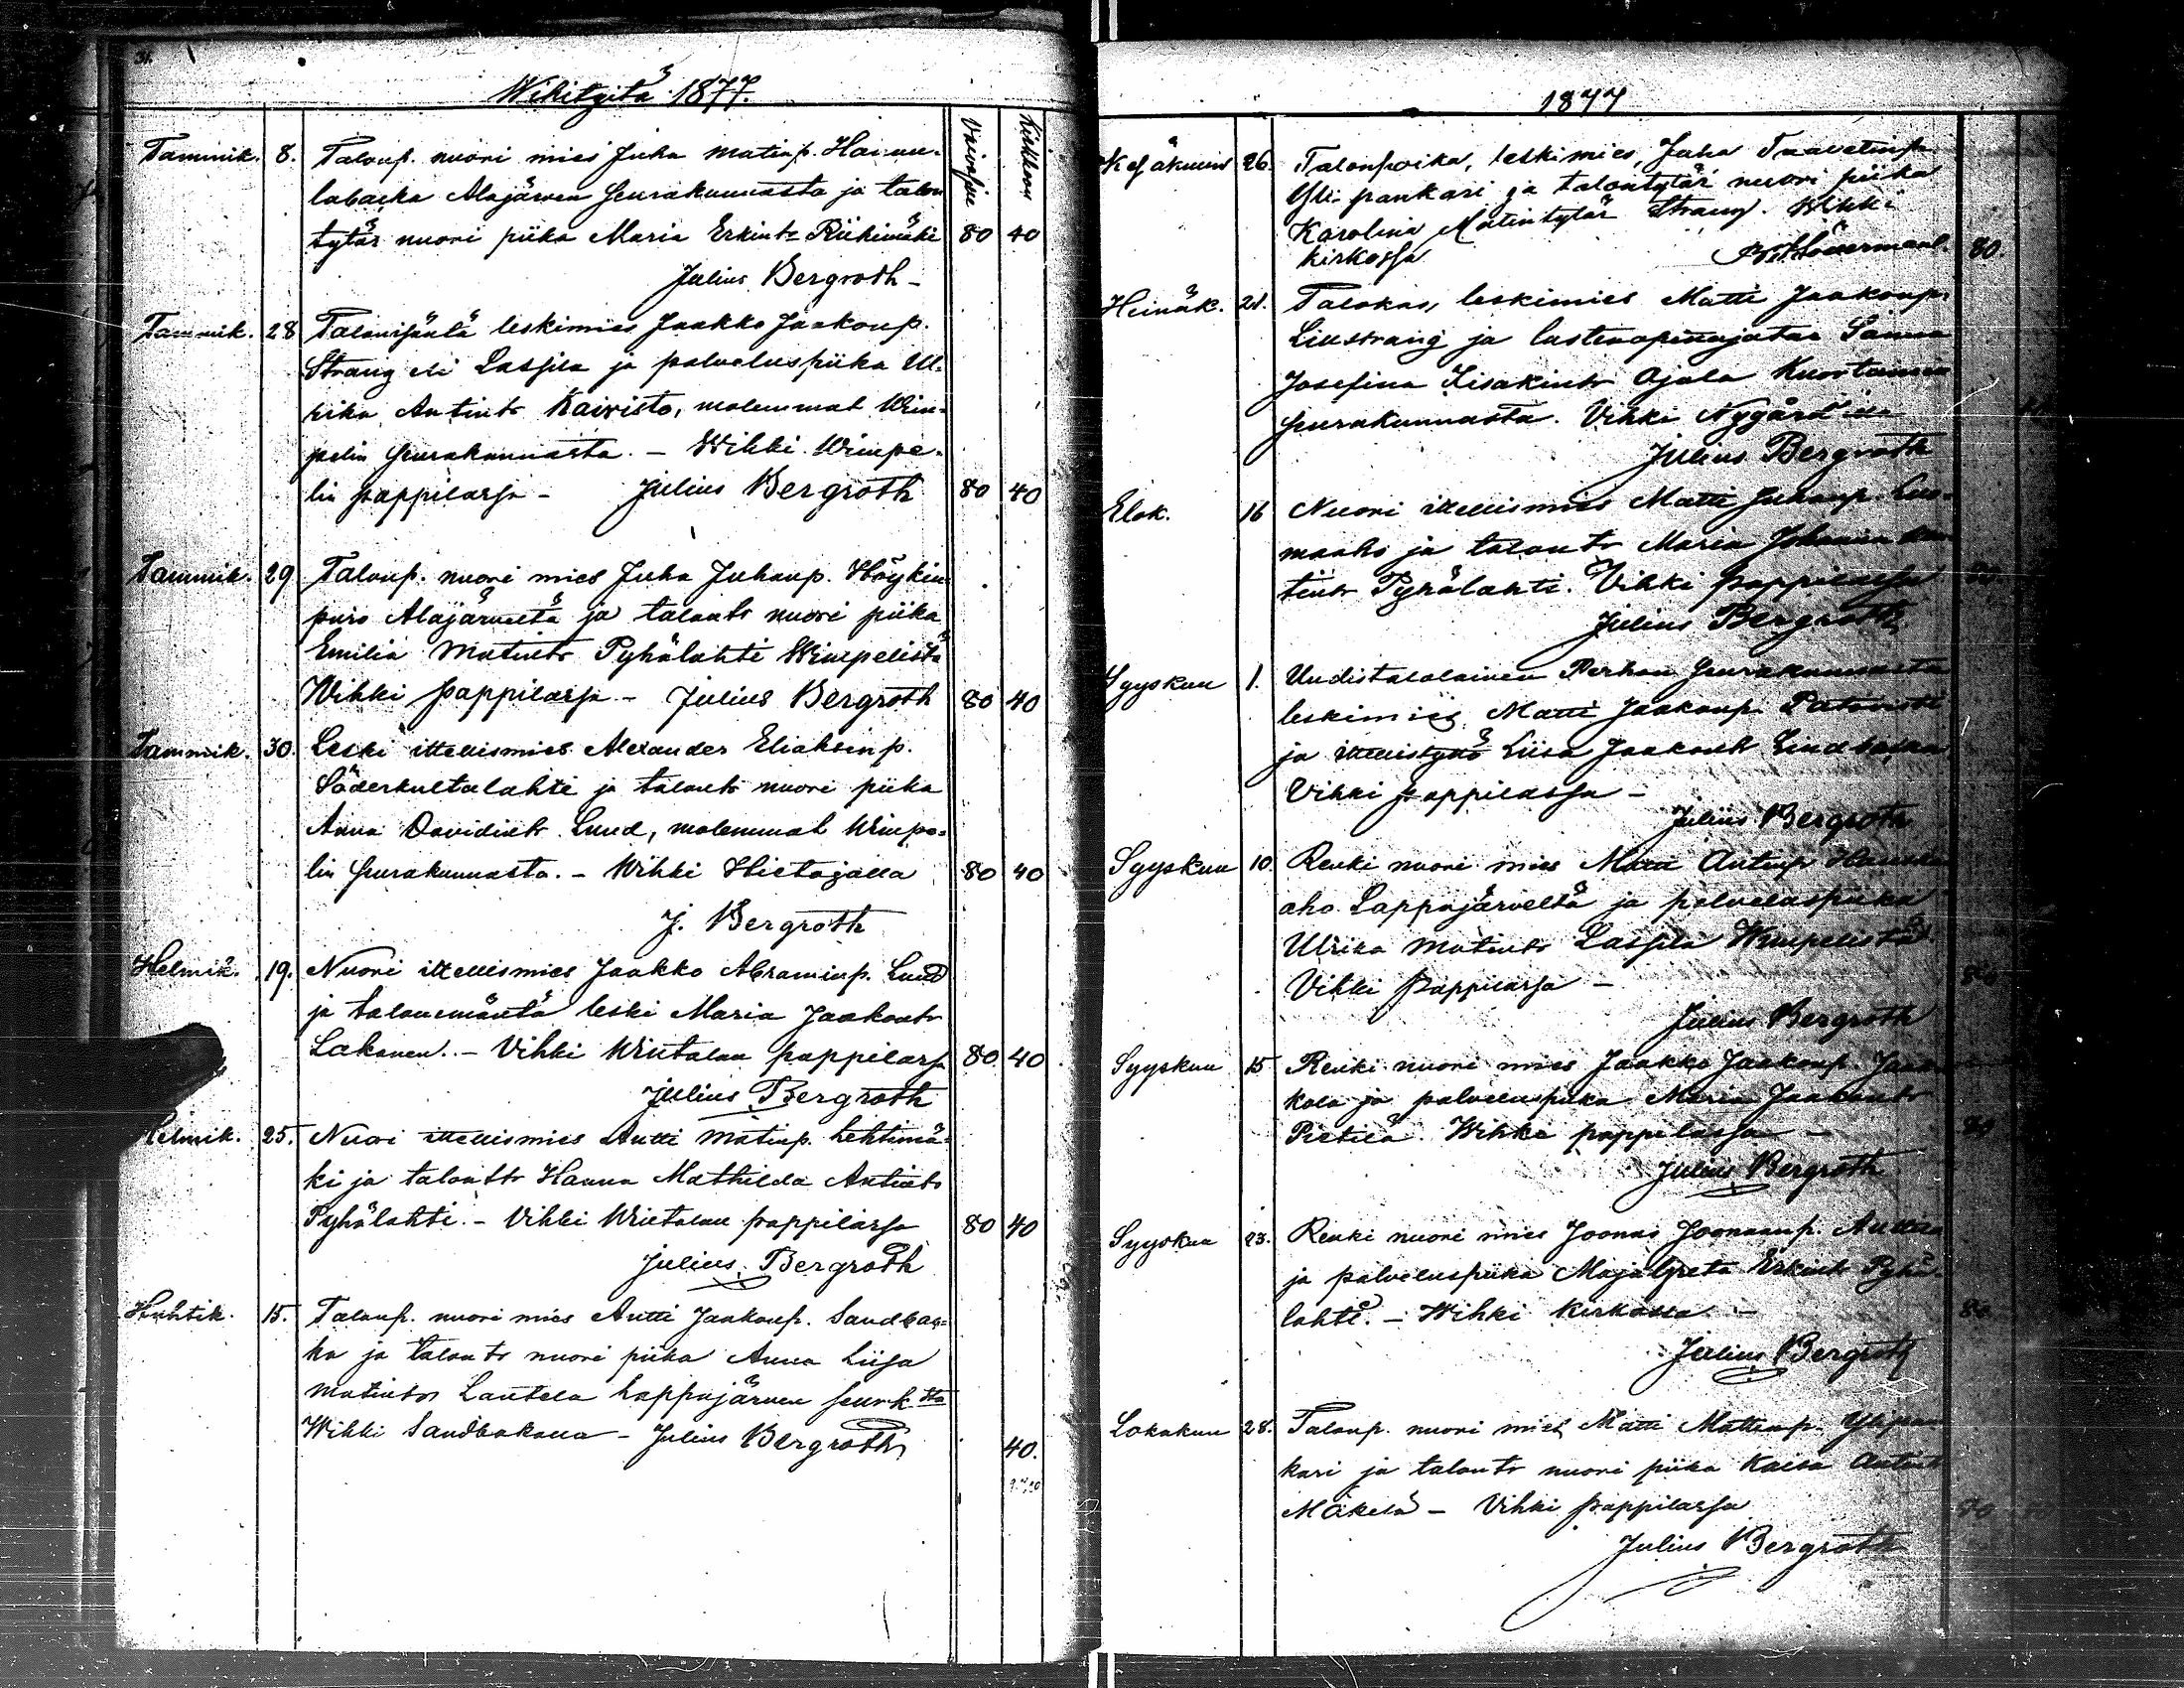 Wihityitä 1877.
Vaivasjen Kirkkoon
Tammik. 8. Taloup. nuori mies Juha Matinp. Hannu-
labacka Alajärven seurakunnasta ja talon
tytär nuori piika Maria Erkintr Riikimäki 80 40
Julius Bergroth -
Tammik. 28 Talonisäntä leskimies Jaakko Jaakonp.
Strang eli Lassila ja palveluspiika Ul-
rika Antintr Kaivisto, molemmat Wim-
pelin seurakunnasta. - Wihki Wimpe-
lin pappilassa - Julius Bergroth 80 40
Tammik. 29 Talonp. nuori mies Juha Juhanp. Höykin
puro Alajärveltä ja talontr nuori piika
Emilia Matintr Pyhälahti Wimpelistä
Wihki pappilassa - Julius Bergroth 80 40
Tammik. 30. Leski ittellismies Alexander Eliaksinp.
Söderkultalahti ja talontr nuori piika
Anna Davidintr Lund, molemmat Wimpe-
lin seurakunnasta. - Wihki Hietajalla 80 40
J. Bergroth
Helmik. 19. Nuori ittellismies Jaakko Abraminp. Lund
ja talonemäntä leski Maria Jaakontr
Lakanen. - Vihki Wintalan pappilassa 80 40
Julius Bergroth
Helmik. 25. Nuori ittellismies Antti Matinp. Lehtimä-
ki ja talontr Hanna Mathilda Antintr
Pyhälahti. - Vihki Wintalan pappilassa 80 40
Julius Bergroth
Huhtik. 15. Talonp. nuori mies Antti Jaakonp. Sandbac-
ka ja talontr nuori piika Anna Liisa
Matintr Lantela Lappajärven seurk.sta
Wihki Sandbakalla - Julius Bergroth 40.
1877
Kesäkuun 26. Talonpoika, leskimies, Juha Taavetinp.
Yli-pankari ja talontytär nuori piika
Karolina Matintytär Strang. Wihki
kirkossa 80.
Heinäk. 21. Talokas, leskimies Matti Jaakonp.
Lillstrang ja lastenopettajatar Sanna
Josefina Iisakintr Ojala Kuortaneen
seurakunnasta. Vihki Nygård
Julius Bergroth
Elok. 16 Nuori ittellismies Matti Juhanp. Luo-
maaho ja talontr Maria Johanna
tintr Pyhälahti. Vihki pappilassa 80
Julius Bergroth
Syyskuu 1. Uudistalolainen Perhon seurakunnasta
leskimies Matti Jaakonp.
ja ittellistyttö Liisa Jaakontr
Vihki pappilassa -
Julius Bergroth
Syyskuu 10. Renki nuori mies Matti Antinp.
aho Lappajärveltä ja palveluspiika
Ulrika Matintr Lassila Wimpelistä
Vihki pappilassa - 80
Julius Bergroth
Syyskuu 15 Renki nuori mies Jaakko Jaakonp. Jaak-
kola ja palveluspiika Maria Jaakontr
Pietilä. Wihki pappilassa - 80
Julius Bergroth
Syyskuu 23. Renki nuori mies Joonas Joonaanp.
ja palveluspiika Maja Greta Erkintr Pyhä-
lahti. - Wihki kirkossa - 80
Julius Bergroth
Lokakuu 28. Talonp. nuori mies Matti Mattinp. Ylipan
kari ja talontr nuori piika Kaisa Antintr
Mäkelä - Vihki pappilassa 80
Julius Bergroth